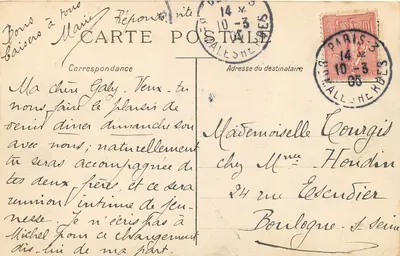 Bons
baisers à tous
Marie
Réponds vite
CARTE POSTALE
Correspondance
Adresse du destinataire
PARIS-3
14
10-3
06
BD MALESHERBES
PARIS-3
14
10-3
06
BD MALESHERBES
Ma chère Gaby. Veux-tu
nous faire le plaisir de
venir dîner dimanche soir
avec nous; naturellement
tu seras accompagnée de
tes deux frères, et ce sera
réunion intime de jeu-
nesse. Je n'écris pas à
Michel pour ce changement
dis-lui de ma part.
Mademoiselle Tourgis
chez Mme Houdin
24 rue Escudier
Boulogne s- Seine